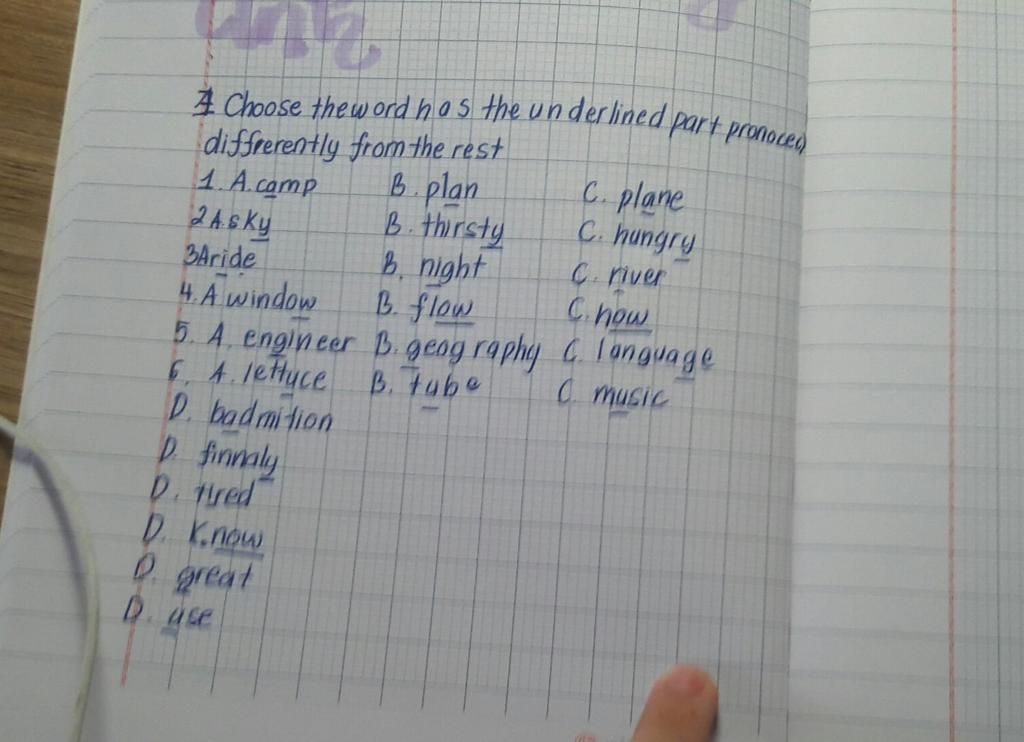 I Choose the word has the underlined part pronoced
diffrerently from the rest
1. A. camp B. plan C. plane
2 A sky B. thirsty C. hungry
3 A ride B. night C. river
4. A window B. flow C. how
5. A. engineer B. geography C. language
6. A. lettuce B. tube C. music
D. badmition
D. finnaly
D. tired
D. Know
D. great
D. use